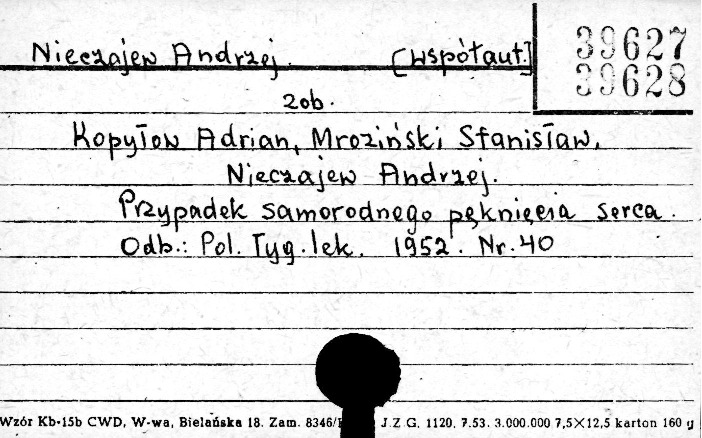 Nieczajew Andrzej. [współaut.]
39627
39628
zob.
Kopyłow Adrian, Mroziński Stanisław,
Nieczajew Andrzej.
Przypadek samorodnego pęknięcia serca.
Odb.: Pol. Tyg. lek. 1952. Nr. 40
Wzór Kb-15b CWD, W-wa, Bielańska 18. Zam. 8346/ J.Z.G. 1120. 7.53. 3.000.000 7,5×12,5 karton 160 g